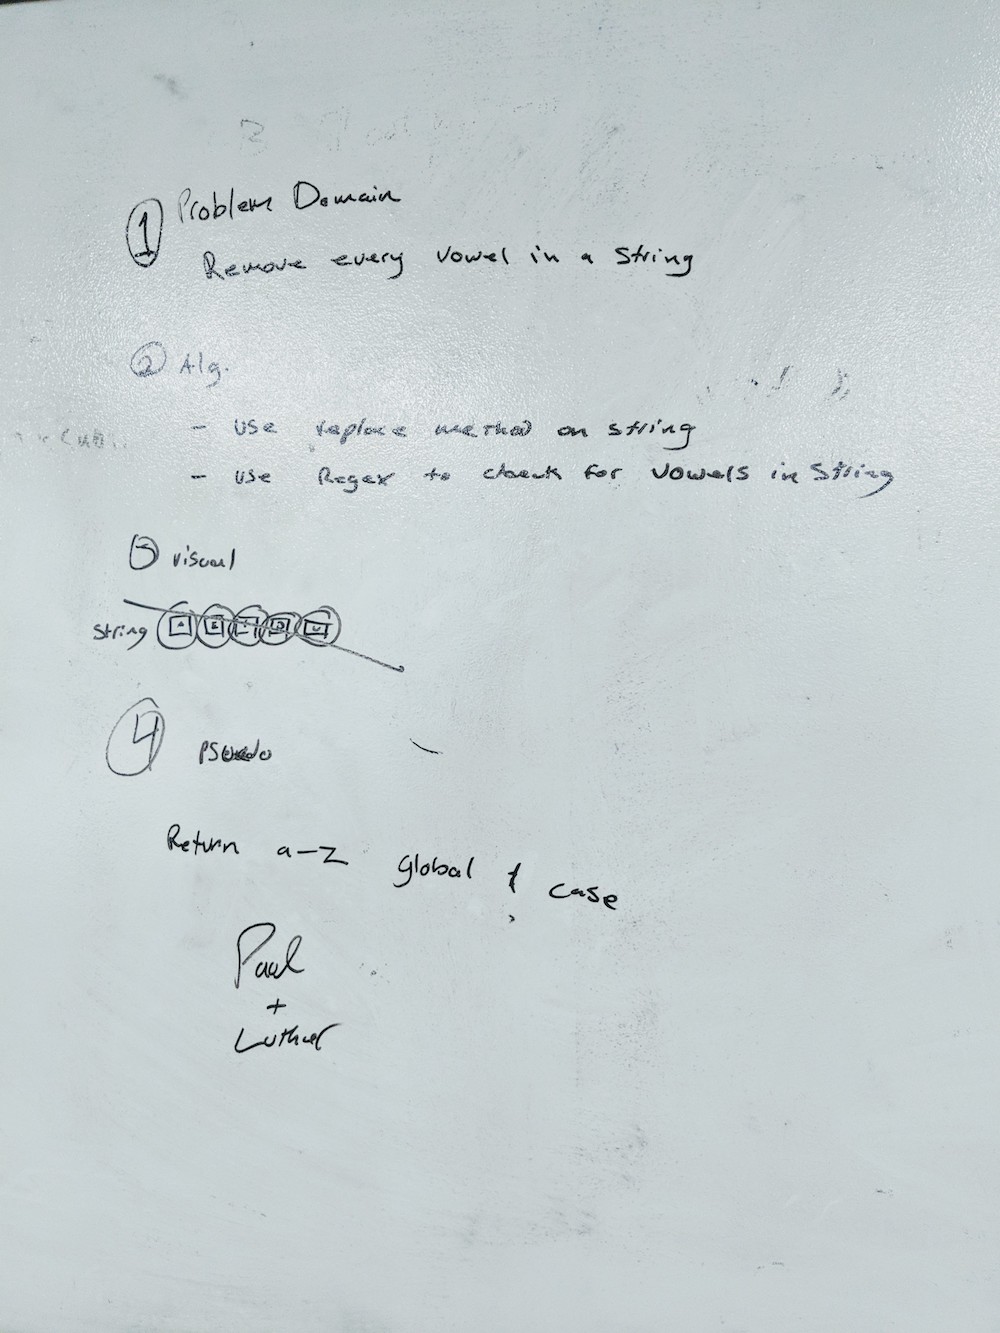 1 Problem Domain
Remove every vowel in a string
2 Alg.
- use replace method on string
- use Regex to check for vowels in string
3 visual
String A E I O U
4 Pseudo
Return a-z global & case
Paul
+
Luther